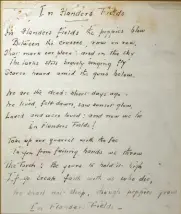 In Flanders Fields
In Flanders Fields the poppies blow
Between the crosses, row on row,
That mark our place: and in the sky
The larks still bravely singing, fly
Scarce heard amid the guns below.
We are the dead: short days ago
We lived, felt dawn, saw sunset glow,
Loved and were loved: and now we lie
In Flanders Fields!
Take up our quarrel with the foe
To you from failing hands we throw
The torch: be yours to hold it high
If ye break faith with us who die,
We shall not sleep, though poppies grow
In Flanders Fields